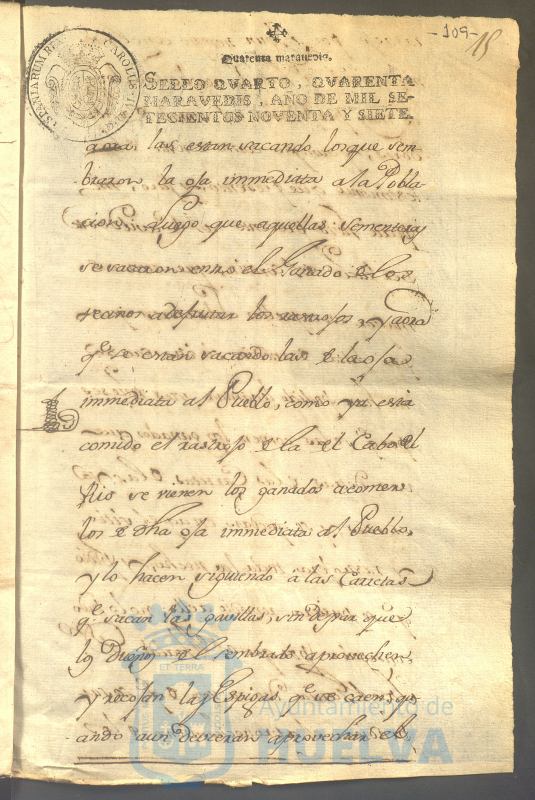 -109-
15
HISPANIARUM REX
CAROLUS IV D G
Quarenta maravedis.
SELLO QVARTO, QVARENTA
MARAVEDIS, AÑO DE MIL SE-
TECIENTOS NOVENTA Y SIETE.
aora las estan sacando los que sem-
braron la oja immediata a la Pobla-
cion. Luego que aquellas sementeras
se sacaron entró el Ganado de los
vecinos a desfrutar los rastrojos, y aora
qe. se estan sacando las de la oja
immediata al Pueblo, como ya está
comido el rastrojo de la del Cabo del
Rio se vienen los ganados a comer
los de dha oja immediata al Pueblo,
y lo hacen siguiendo a las Carretas
qe. sacan las gavillas, sin dejar que
los Dueños del sembrado aprovechen,
y recojan las Espigas qe. se caen, qu-
ando aun devieran aprovechar el
ET TERRA
Ayuntamiento de
HUELVA